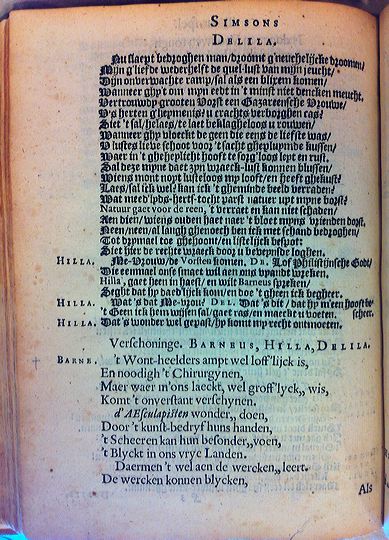 SIMSONS
DELILA.
Nu slaept bedroghen man/ droomt g'neuchelijcke droomen/
Mijn g'liefde wederhelft de quel-lust van mijn jeucht/
Dijn onverwachte ramp/ sal als een blixem komen/
Wanneer ghy't om mijn eedt in 't minst niet dencken meucht.
Vertrouwdy grooten Vorst een Gazareensche Vrouwe/
D'g herten g'heymenis? u crachts verborghen cas?
Siet 't sal/ helaes/ te laet beklagheloos u rouwen/
Wanneer ghy vloeckt de geen die eens de liefste was/
U lustes lieve schoot voor 't sacht gheplupmde kussen/
Waer in 't gheheplicht hooft te sorg'loos lept en rust.
Sal deze mijne daet zyn wraeck-lust konnen blussen/
Wiens mont nopt lusteloos my looft/ en heeft ghekust?
Laes/ sal ick wel? kan ick 't gheminde beeld verraden?
Wat meed'lyds-hertf-tocht parst natuer upt mijne borst?
Natuur gaet voor de reen, 't verraet en kan niet schaden
Aen dien/ wiens ondert haet naer 't bloet mijns vrienden dorst.
Neen/ neen/ al laugh ghenoech ben ick met schand bedroghen/
Tot drymael toe ghehoont/ en listelijck bespot:
Siet hier de rechte wraeck doop u bevepnsde loghen.
HILLA. Me-Vrouw/ de Vorsten komen, DE. Lof Philistijnsche God/
Die eenmael onse smaet wil aen ons vyandt wreken.
Hilla, gaet heen in haest/ en wilt Barneus spreken/
Seght dat hy daedlijck kom/ en doe 't gheen ick begheer.
HILLA. Wat 's dat Me-vrou? DEL. Dat 's dit/ dat hy m'een hooft bescheer.
't Geen ick hem wijsen sal/ gaet ras/ en maeckt u voeten.
HILLA. Dat 's wonder wel gepast/ hy komt my recht ontmoeten.
Verschoninge. BARNEUS, HILLA, DELILA.
BARNE. 't Wont-heelders ampt wel loff'lijck is,
En noodigh 't Chirurgynen,
Maer waer m'ons laeckt, wel groff'lyck„ wis,
Komt 't onverstant verschynen.
d'AEsculapisten wonder„ doen,
Door 't kunst-bedryf huns handen,
't Scheeren kan hun besonder„voen,
't Blyckt in ons vrye Landen.
Daermen 't wel aen de wercken„ leert.
De wercken konnen blycken,
Als